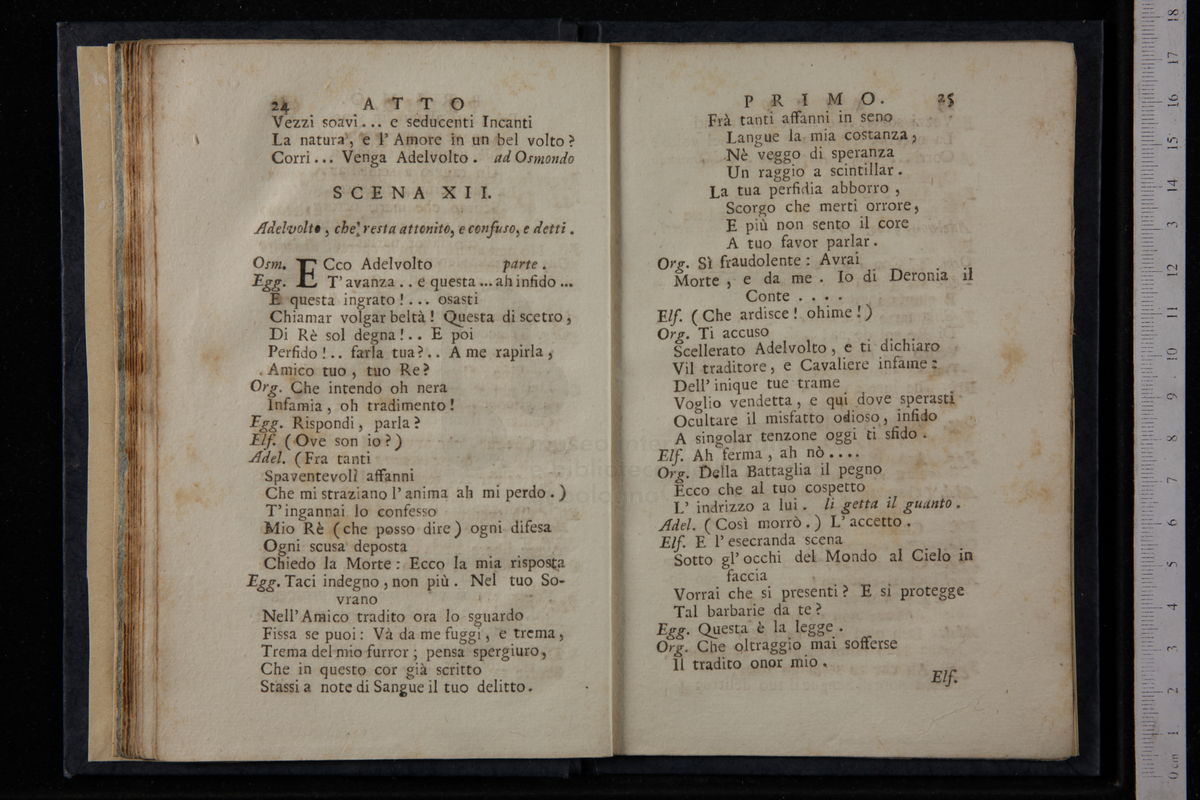 24 ATTO
Vezzi soavi... e seducenti Incanti
La natura, e l'Amore in un bel volto?
Corri... Venga Adelvolto. ad Osmondo
SCENA XII.
Adelvolto, che resta attonito, e confuso, e detti.
Osm. ECco Adelvolto parte.
Egg. T'avanza.. e questa... ah infido...
E questa ingrato!... osasti
Chiamar volgar beltà! Questa di scetro,
Di Rè sol degna!.. E poi
Perfido!.. farla tua?.. A me rapirla,
Amico tuo, tuo Re?
Org. Che intendo oh nera
Infamia, oh tradimento!
Egg. Rispondi, parla?
Elf. (Ove son io?)
Adel. (Fra tanti
Spaventevoli affanni
Che mi straziano l'anima ah mi perdo.)
T'ingannai lo confesso
Mio Rè (che posso dire) ogni difesa
Ogni scusa deposta
Chiedo la Morte: Ecco la mia risposta
Egg. Taci indegno, non più. Nel tuo So-
vrano
Nell'Amico tradito ora lo sguardo
Fissa se puoi: Và da me fuggi, e trema,
Trema del mio furror; pensa spergiuro,
Che in questo cor già scritto
Stassi a note di Sangue il tuo delitto.
PRIMO. 25
Frà tanti affanni in seno
Langue la mia costanza,
Nè veggo di speranza
Un raggio a scintillar.
La tua perfidia abborro,
Scorgo che merti orrore,
E più non sento il core
A tuo favor parlar.
Org. Sì fraudolente: Avrai
Morte, e da me. Io di Deronia il
Conte....
Elf. (Che ardisce! ohime!)
Org. Ti accuso
Scellerato Adelvolto, e ti dichiaro
Vil traditore, e Cavaliere infame:
Dell'inique tue trame
Voglio vendetta, e qui dove sperasti
Ocultare il misfatto odioso, infido
A singolar tenzone oggi ti sfido.
Elf. Ah ferma, ah nò....
Org. Della Battaglia il pegno
Ecco che al tuo cospetto
L'indrizzo a lui. li getta il guanto.
Adel. (Così morrò.) L'accetto.
Elf. E l'esecranda scena
Sotto gl'occhi del Mondo al Cielo in
faccia
Vorrai che si presenti? E si protegge
Tal barbarie da te?
Egg. Questa è la legge.
Org. Che oltraggio mai sofferse
Il tradito onor mio.
Elf.
0 cm 1 2 3 4 5 6 7 8 9 10 11 12 13 14 15 16 17 18